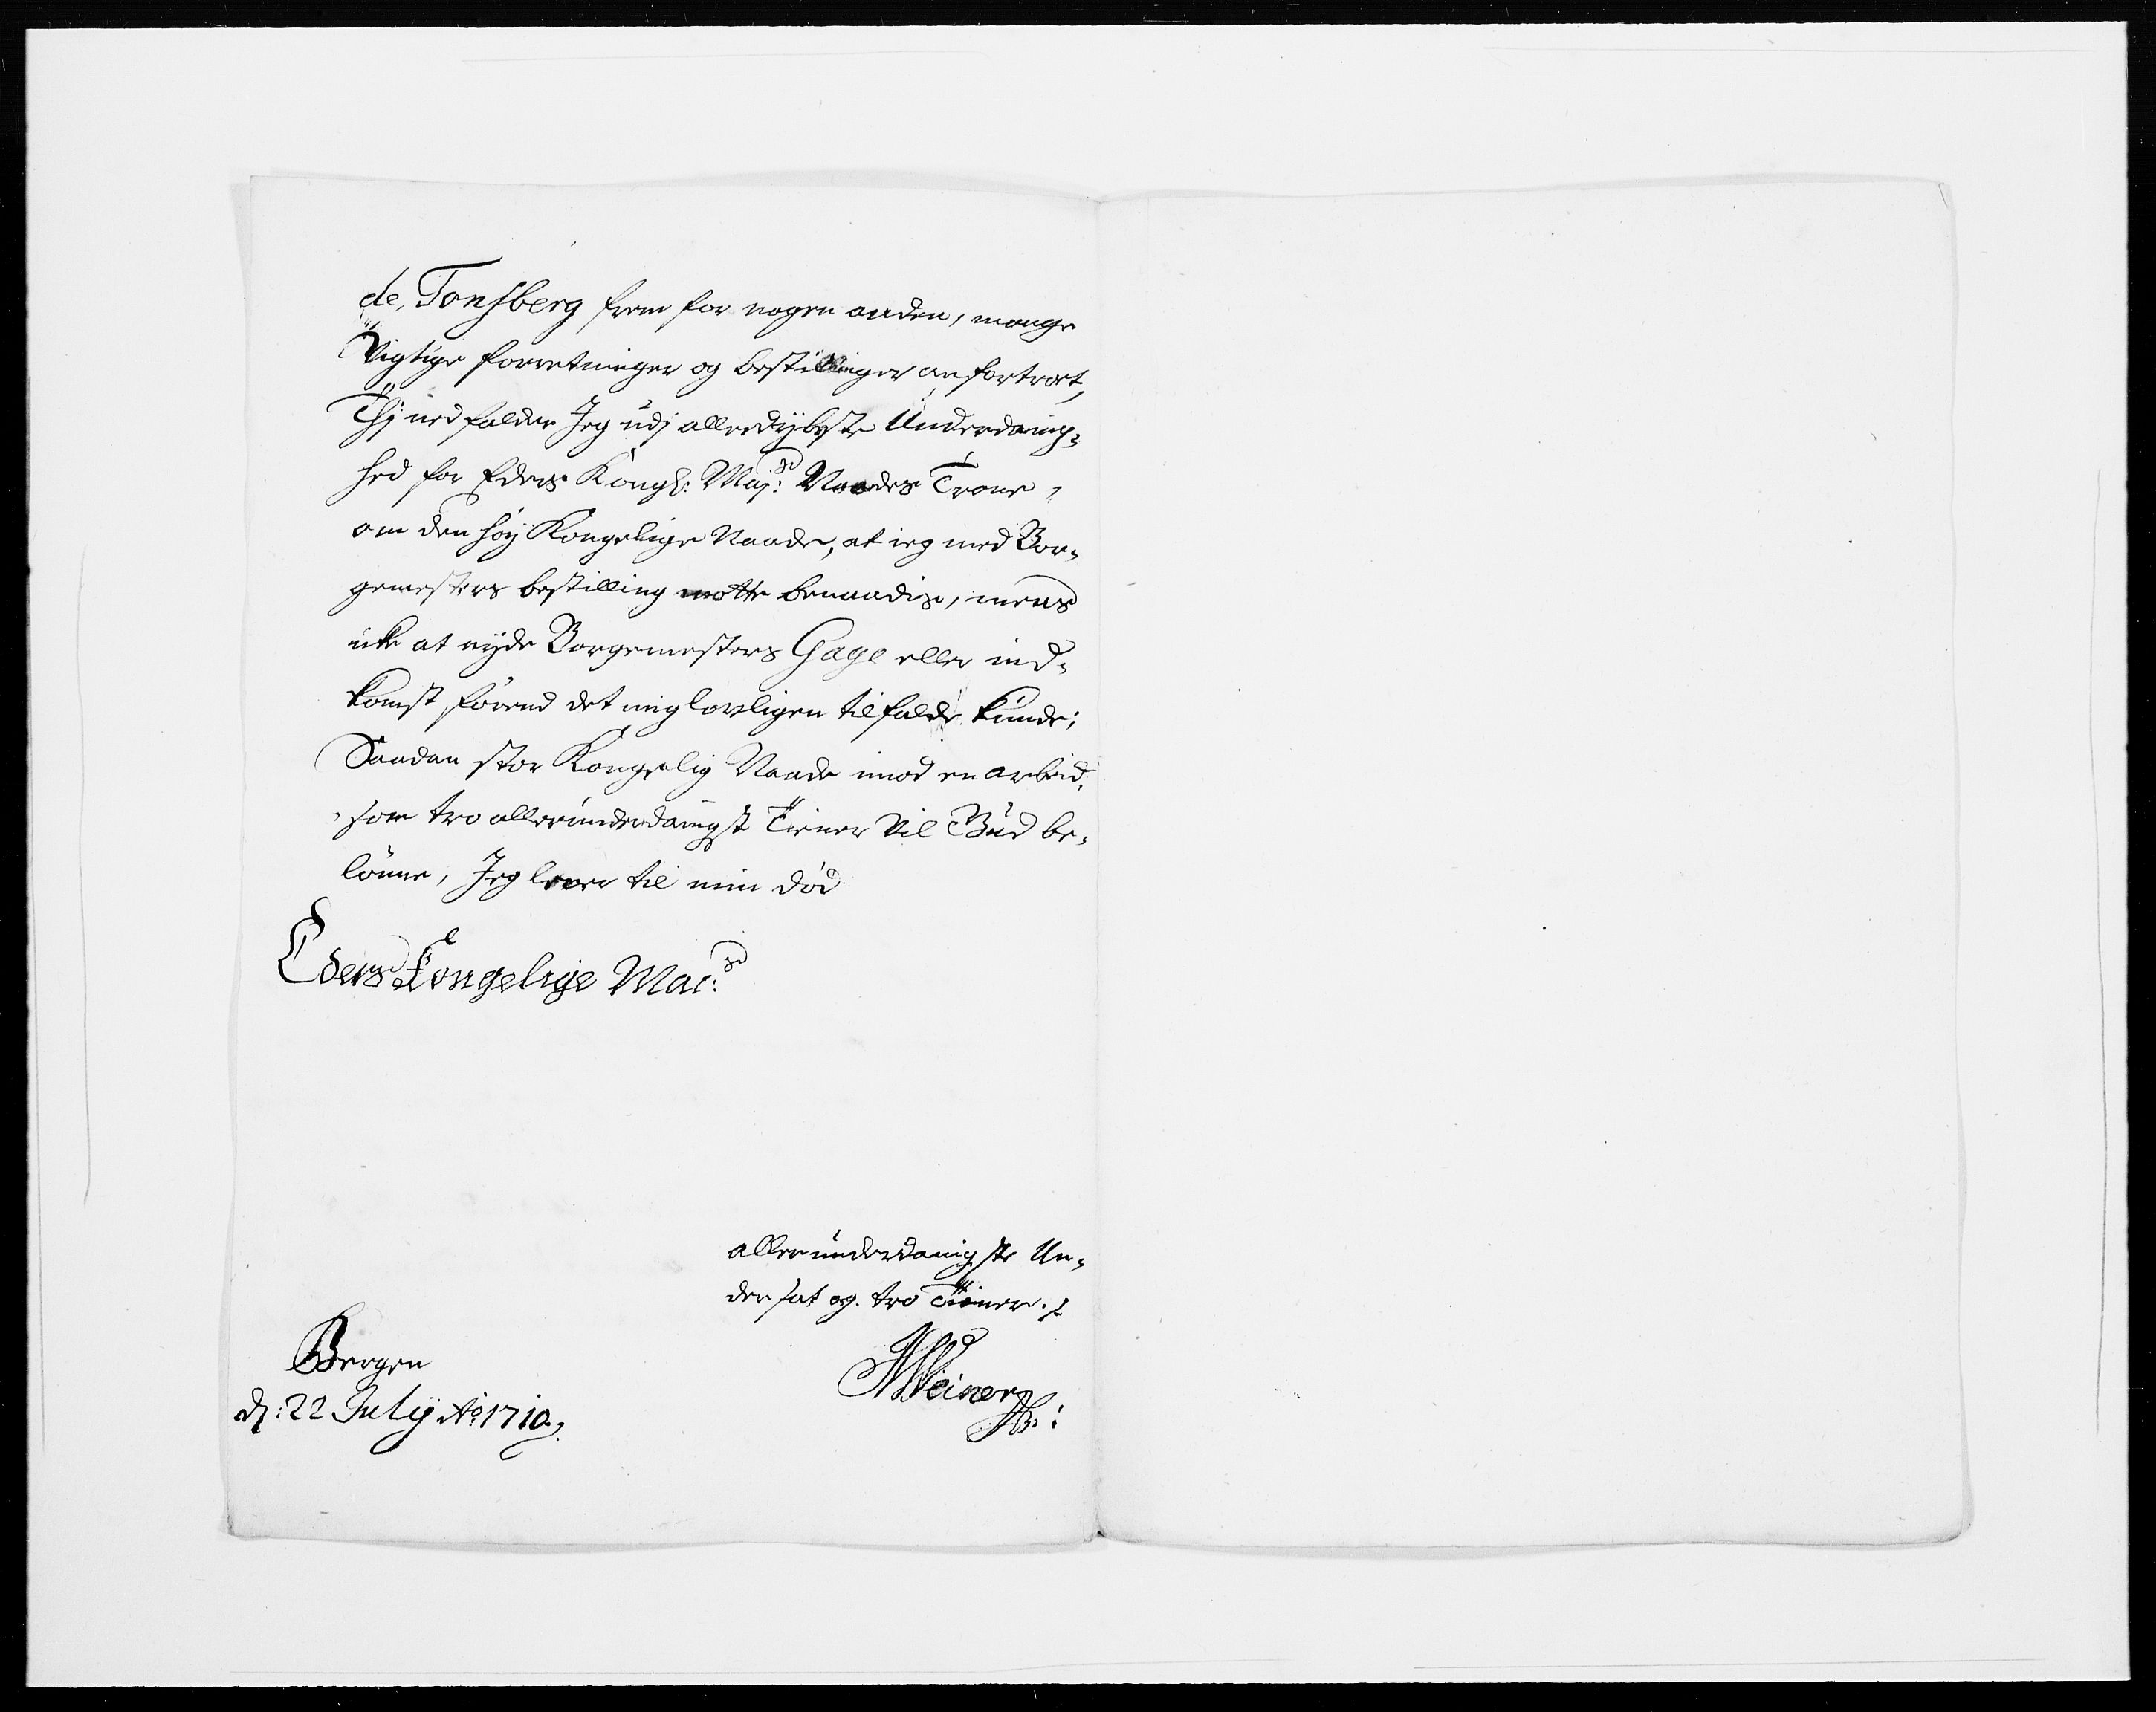 de, Tonsberg frem for nogen anden, mange
Vigtige forretninger og bestillinger anfortroet,
Thj nedfalder Jeg udj allerdybeste Underdanig-
hed for Eders Kongl: Maj:ts Naades Trone,
om den høy Kongelige Naade, at ieg med Bor-
gemesters bestilling motte benaadis, mens
icke at nyde Borgemesters Gage eller ind-
komst, førend det mig lovligen tilfalde kunde;
Saadan stor Kongelig Naade imod en arbeid-
som tro allerunderdanigst Tiener Vil Gud be-
lønne, Jeg lever til min død
Eders Kongelige Mai:ts
allerunderdanigste Un-
dersat og tro Tiener.
Bergen
d: 22 July Ao 1710.
Weiner